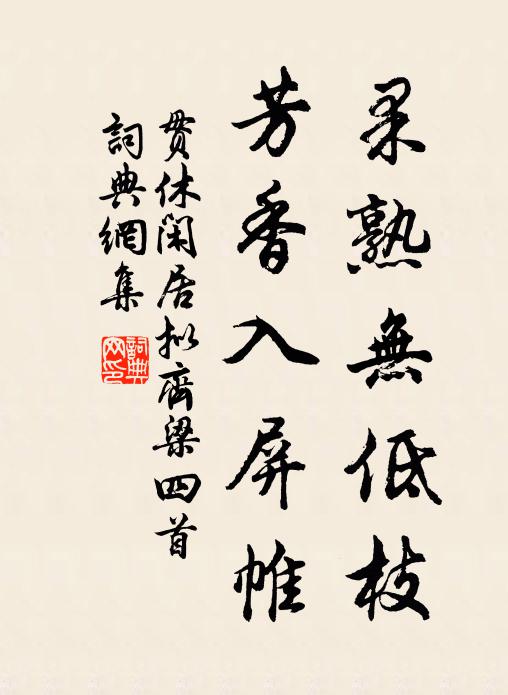 果熟無低枝
芳香入屏帷
貫休閑居拟齊梁四首
詞典網集
詞典網印